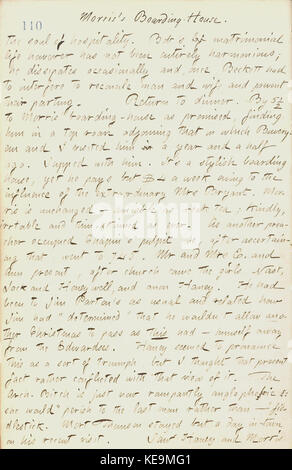 110 Morris's Boarding-House.
the soul of hospitality. Bob's matrimonial
life however has not been entirely harmonious;
he dissipates occasionally and once Beckett had
to interfere to reconcile man and wife and prevent
their parting. Return to dinner. By 5½
to Morris' boarding-house as promised, finding
him in a top room adjoining that in which
and I visited him in a year and a half
ago. Supped with him. It's a stylish boarding
house, yet he pays but $4 a week owing to the
influence of the extraordinary Mrs Bryant.
is unchanged, kindly,
irritable and As another
occupied pulpit after
ing that went to
present, after church came the girls Nast,
Jack and Honeywell, and anon Haney. He had
been to Jim Parton's as usual and related how
Jim had "determined" that he wouldn't allow
other Christmas to pass as this had — himself away
from the Edwardses. Haney seemed to pronounce
this as a sort of triumph but I thought that present
fact rather conflicted with that view of it. The
is just now rampantly anglophobic:
would perish to the last man rather than —
Mort Thomson stayed but a day in town
on his recent visit. Saw Haney and Morris
alamy
Image ID: EA96MG
www.alamy.com